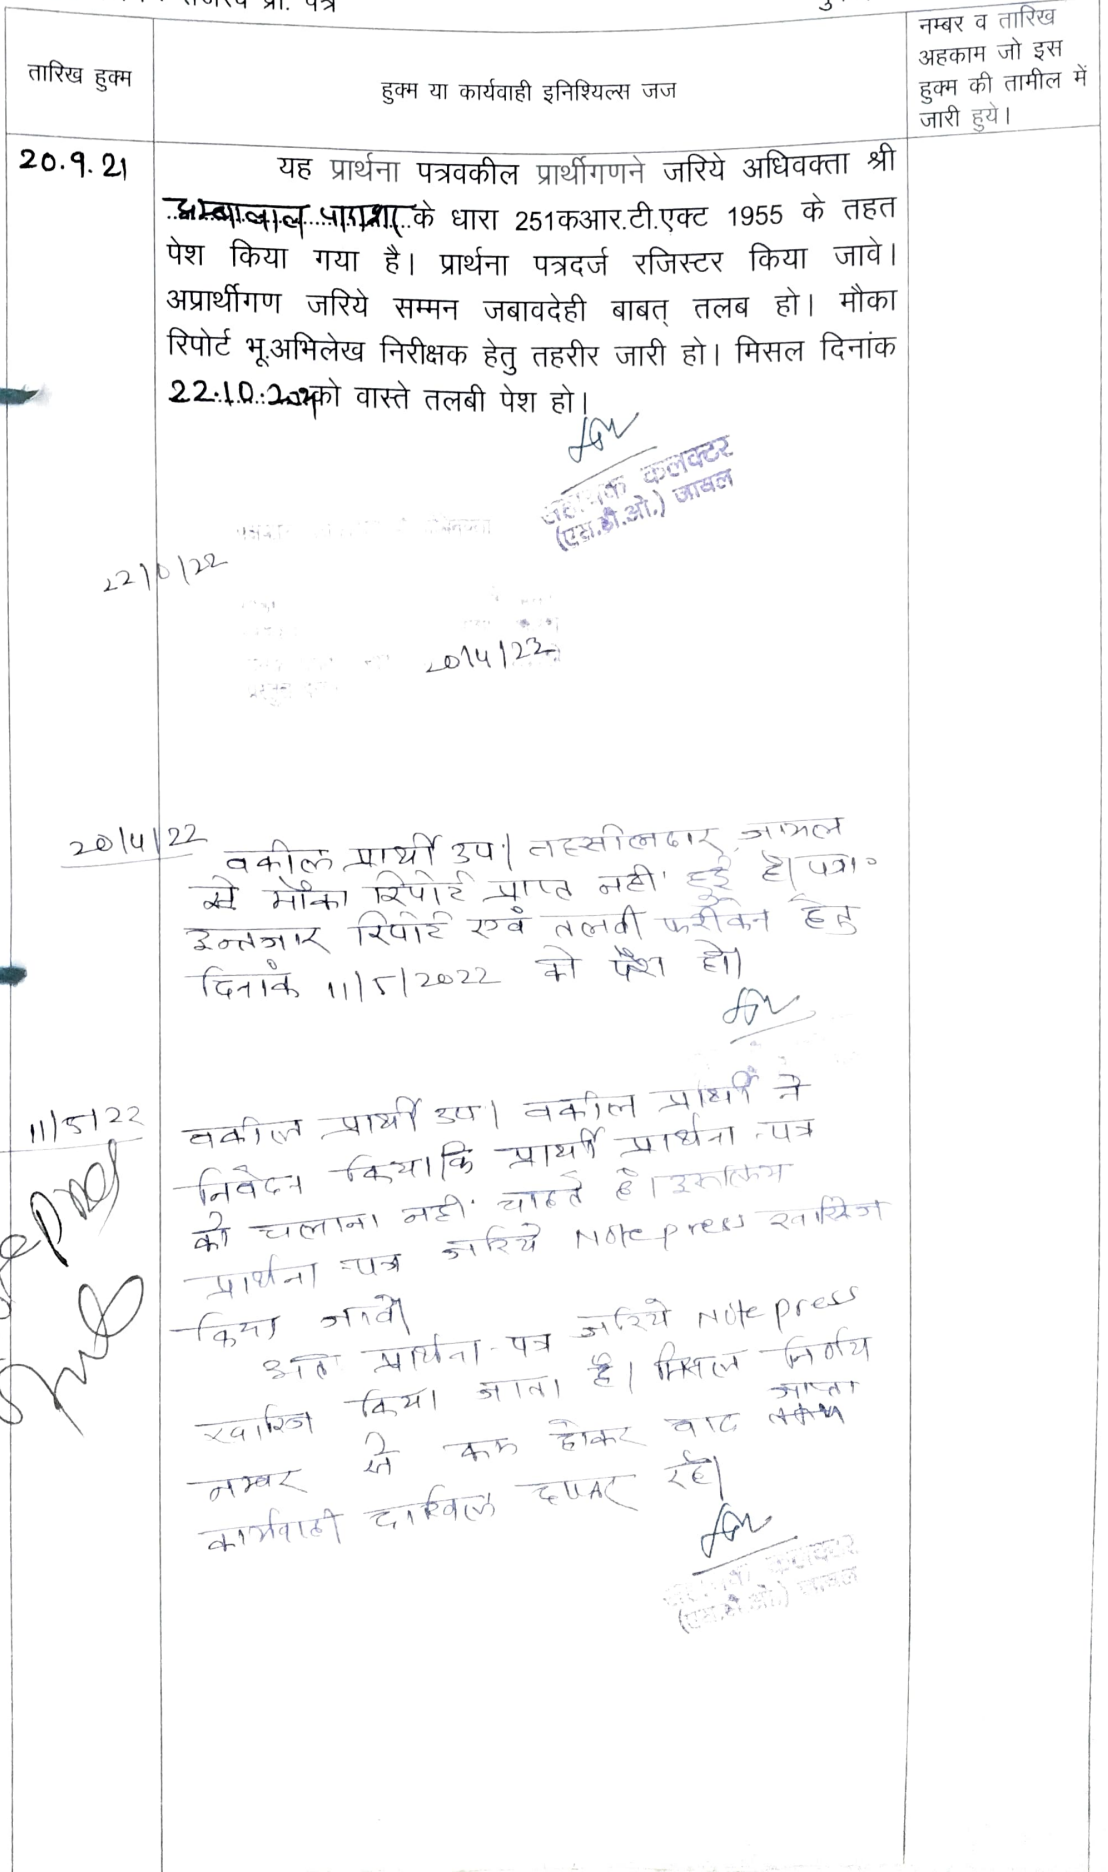 प्रा. पत्र
तारिख हुक्म
हुक्म या कार्यवाही इनिश्यिल्स जज
नम्बर व तारिख
अहकाम जो इस
हुक्म की तामील में
जारी हुये।
20.9.21
यह प्रार्थना पत्रवकील प्रार्थीगणने जरिये अधिवक्ता श्री
अम्बालाल के धारा 251कआर.टी.एक्ट 1955 के तहत
पेश किया गया है। प्रार्थना पत्रदर्ज रजिस्टर किया जावे।
अप्रार्थीगण जरिये सम्मन जबावदेही बाबत् तलब हो। मौका
रिपोर्ट भू.अभिलेख निरीक्षक हेतु तहरीर जारी हो। मिसल दिनांक
22.10. को वास्ते तलबी पेश हो।
सहायक कलक्टर
(एस.डी.ओ.) जायल
20/4/22
20/4/22
वकील प्रार्थी उप। तहसीलदार जायल
से मौका रिपोर्ट प्राप्त नहीं हुई है। पत्रा॰
इन्तजार रिपोर्ट एवं तलबी फरीकेन हेतु
दिनांक 11/5/2022 को पेश हो।
11/5/22
वकील प्रार्थी उप। वकील प्रार्थी ने
निवेदन किया कि प्रार्थी प्रार्थना-पत्र
को चलाना नहीं चाहते है। इसलिए
प्रार्थना-पत्र जरिये Note press खारिज
किया जावे।
अतः प्रार्थना-पत्र जरिये Note press
खारिज किया जाता है। मिसल निर्णय
नम्बर से कम होकर बाद जाप्ता
कार्यवाही दाखिल दफ्तर रहे।
(एस.डी.ओ.) जायल